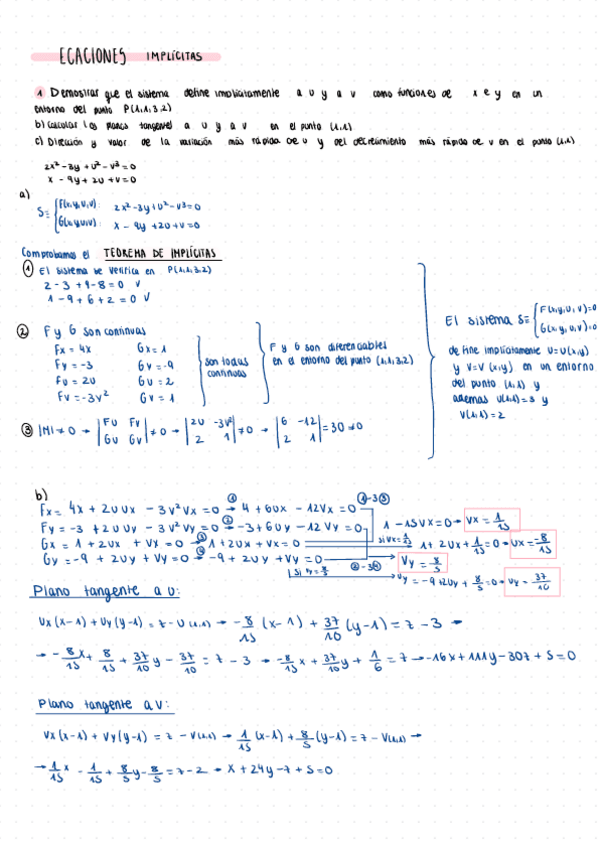 ECACIONES IMPLÍCITAS
1 Demostrar que el sistema define implícitamente a u y a v como funciones de x e y en un
entorno del punto P(1,1,3,2)
b) Calcular los planos tangentes a u y a v en el punto (1,1)
c) Dirección y valor de la variación más rápida de u y del decrecimiento más rápido de v en el punto (1,1)
2x²-3y+u²-v³=0
x-9y+2u+v=0
a)
S≡ { F(x,y,u,v): 2x²-3y+u²-v³=0
G(x,y,u,v): x-9y+2u+v=0
Comprobamos el TEOREMA DE IMPLÍCITAS
① El sistema se verifica en P(1,1,3,2)
2-3+9-8=0 √
1-9+6+2=0 √
② F y G son continuas
Fx = 4x Gx = 1
Fy = -3 Gy = -9
Fu = 2u Gu = 2
Fv = -3v² Gv = 1
son todas
continuas
F y G son diferenciables
en el entorno del punto (1,1,3,2)
③ |M|≠0 → |Fu Fv Gu Gv| ≠0 → |2u -3v² 2 1| ≠0 → |6 -12 2 1| = 30 ≠0
El sistema S≡ { F(x,y,u,v)=0
G(x,y,u,v)=0
define implícitamente u=u(x,y)
y v=v(x,y) en un entorno
del punto (1,1) y
además u(1,1)=3 y
v(1,1)=2
b)
Fx = 4x + 2uux - 3v²vx = 0 ① → 4 + 6ux - 12vx = 0 ①-3③
Fy = -3 + 2uuy - 3v²vy = 0 ② → -3 + 6uy - 12vy = 0
Gx = 1 + 2ux + vx = 0 ③ → 1 + 2ux + vx = 0
Gy = -9 + 2uy + vy = 0 ④ → -9 + 2uy + vy = 0
1 - 15vx = 0 → vx = 1/15
si vx = 1/15 1 + 2ux + 1/15 = 0 → ux = -8/15
②-3④ vy = 8/5
si vy = 8/5 vy = -9 + 2uy + 8/5 = 0 → uy = 37/10
Plano tangente a u:
ux(x-1) + uy(y-1) = z - u(1,1) → -8/15 (x-1) + 37/10 (y-1) = z - 3 →
→ -8/15 x + 8/15 + 37/10 y - 37/10 = z - 3 → -8/15 x + 37/10 y + 1/6 = z → -16x + 111y - 30z + 5 = 0
Plano tangente a v:
vx(x-1) + vy(y-1) = z - v(1,1) → 1/15 (x-1) + 8/5 (y-1) = z - v(1,1) →
→ 1/15 x - 1/15 + 8/5 y - 8/5 = z - 2 → x + 24y - z + 5 = 0